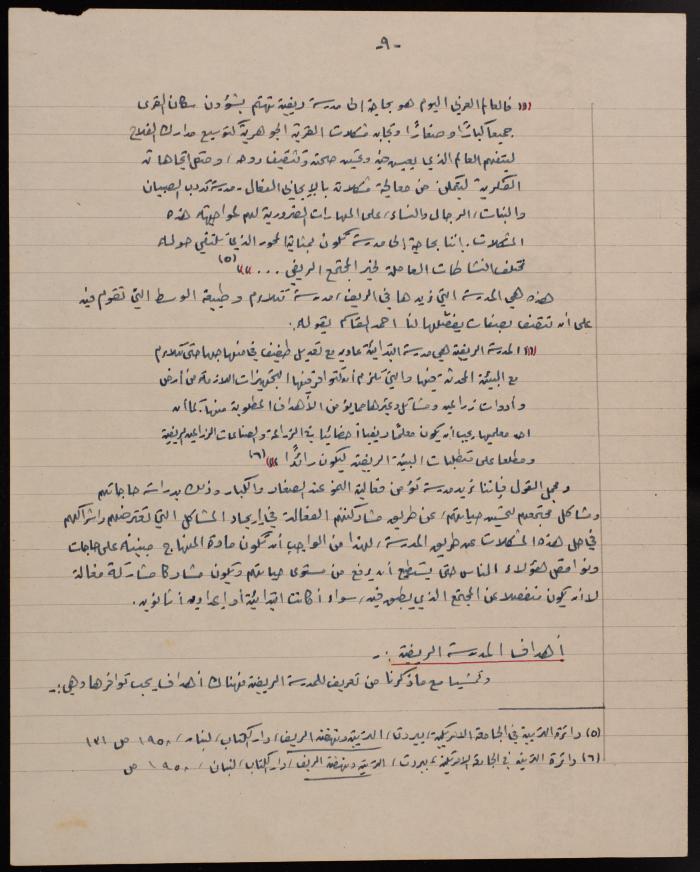 -٩-
"فالعالم العربي اليوم هو بحاجة الى مدرسة ريفية تهتم بشؤون سكان القرى
جميعا كبارًا وصغارًا وتجابه مشكلات القرية الجوهرية كتوسيع مدارك الفلاح
ليتفهم العالم الذي يعيش فيه وتحسين صحته وتثقيف روحه، وصقل اتجاهاته
الفكرية ليتمكن من معالجة مشكلاته بالايجابي الفعال - مدرسة تدرب الصبيان
والبنات، الرجال والنساء، على المهارات الضرورية لهم لمواجهة هذه
المشكلات. اننا بحاجة الى مدرسة تكون بمثابة المحور الذي تلتقي حوله
مختلف النشاطات العاملة لخير المجتمع الريفي ..." (٥)
هذه هي المدرسة التي نريدها في الريف، مدرسة تتلاءم وطبيعة الوسط التي تقوم فيه
على أن تتصف بصفات يفصّلها لنا احمد القاسم بقوله:
"المدرسة الريفية هي مدرسة ابتدائية عادية مع تعديل طفيف في منهاجها حتى تتلاءم
مع البيئة المحدثة فيها والتي يلزم أن تتوافر فيها التجهيزات اللازمة من أرض
وأدوات زراعية ومشاتل وغيرها مما يؤمن الأهداف المطلوبة منها. كما أن
احد معلميها يجب أن يكون معلمًا ريفيا أخصائيا في الزراعة والصناعات الزراعية الريفية
ومطلعا على متطلبات البيئة الريفية ليكون رائدًا" (٦)
ومجمل القول فإننا نريد مدرسة تؤمن فعالية النمو عند الصغار والكبار وذلك بدراسة حاجاتهم
ومشاكل مجتمعهم لتحسين حياتهم، عن طريق مشاركتهم الفعالة في إيجاد المشاكل التي تعترضهم واشراكهم
في حل هذه المشكلات عن طريق المدرسة، لهذا من الواجب أن تكون مادة المنهاج مبنية على حاجات
ونواقص هؤلاء الناس حتى يستطيع أن يرفع من مستوى حياتهم وتكون مشاركا مشاركة فعالة
لا أن يكون منفصلا عن المجتمع الذي يطبق فيه، سواء أكانت ابتدائية أو إعدادية أو ثانوية.
أهداف المدرسة الريفية :-
وتمشيا مع ما ذكرنا من تعريف للمدرسة الريفية فهناك أهداف يجب توافرها وهي:-
(٥) دائرة التربية في الجامعة الاميركية، بيروت، التربية ونهضة الريف، دار الكتاب، لبنان، ١٩٥٠ ص ١٣١
(٦) دائرة التربية في الجامعة الاميركية، بيروت، التربية ونهضة الريف، دار الكتاب، لبنان، ١٩٥٠ ص